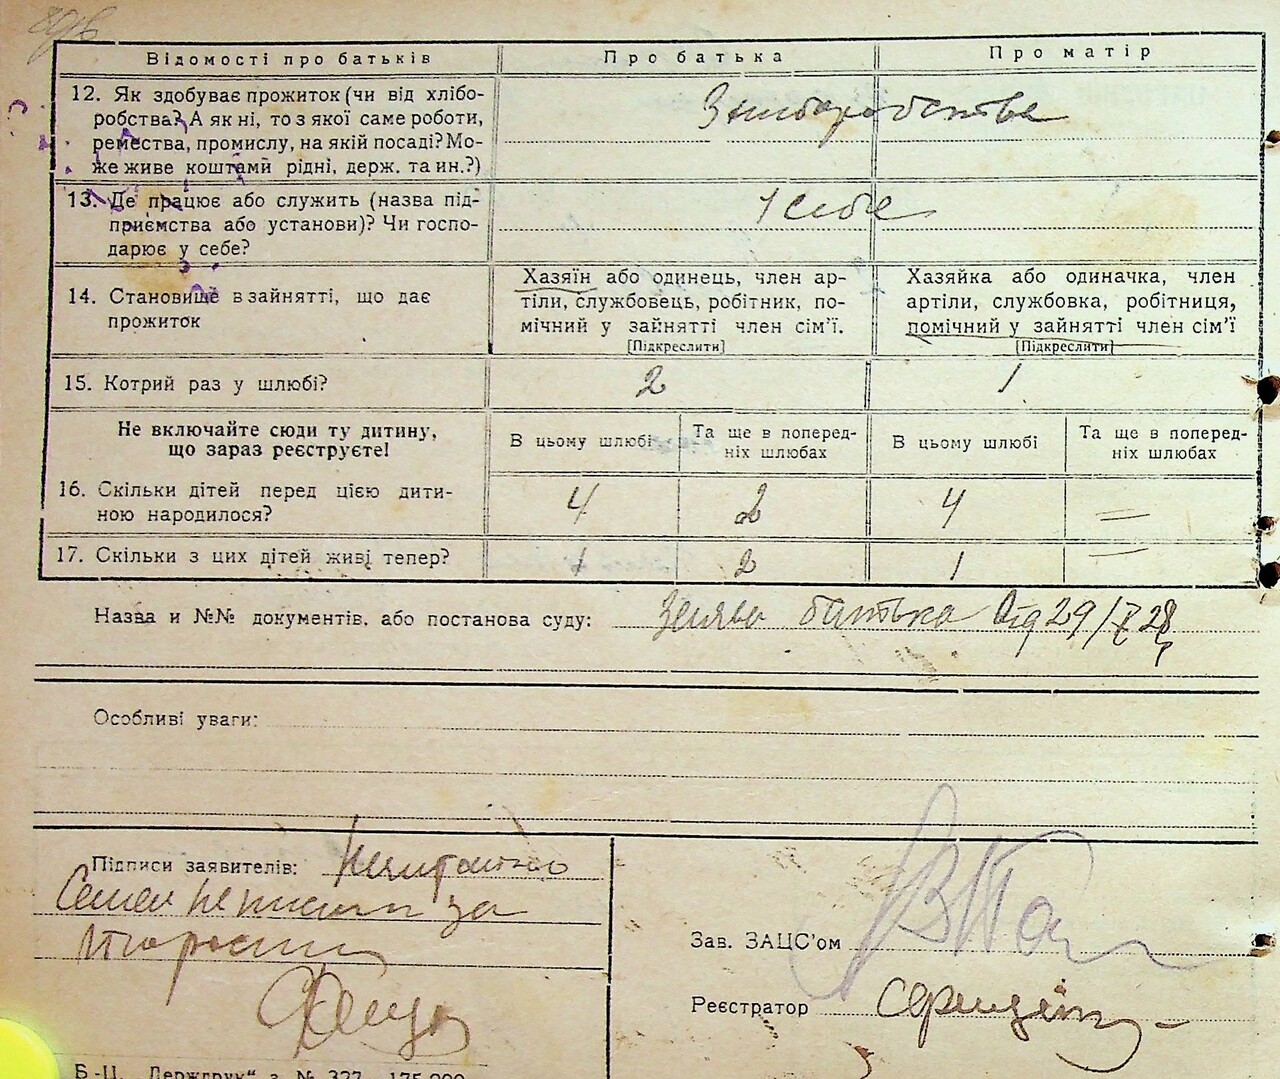 Відомості про батьків
Про батька
Про матір
12. Як здобуває прожиток (чи від хлібо-
робства? А як ні, то з якої саме роботи,
ремества, промислу, на якій посаді? Мо-
же живе коштами рідні, держ. та ин.?)
З хліборобства
13. Де працює або служить (назва під-
приємства або установи)? Чи госпо-
дарює у себе?
У себе
14. Становище в зайнятті, що дає
прожиток
Хазяїн або одинець, член ар-
тіли, службовець, робітник, по-
мічний у зайнятті член сім'ї.
[Підкреслити]
Хазяйка або одиначка, член
артіли, службовка, робітниця,
помічний у зайнятті член сім'ї
[Підкреслити]
15. Котрий раз у шлюбі?
2
1
Не включайте сюди ту дитину,
що зараз реєструєте!
В цьому шлюбі
Та ще в поперед-
ніх шлюбах
В цьому шлюбі
Та ще в поперед-
ніх шлюбах
16. Скільки дітей перед цією дити-
ною народилося?
4
2
4
=
17. Скільки з цих дітей живі тепер?
1
2
1
=
Назва и №№ документів, або постанова суду: Заява батька від 29/
Особливі уваги:
Підписи заявителів:
Семен неписьм за
Зав. ЗАЦС'ом
Реєстратор
Б-Ц. „Держдрук" з. № 327 - 175.000